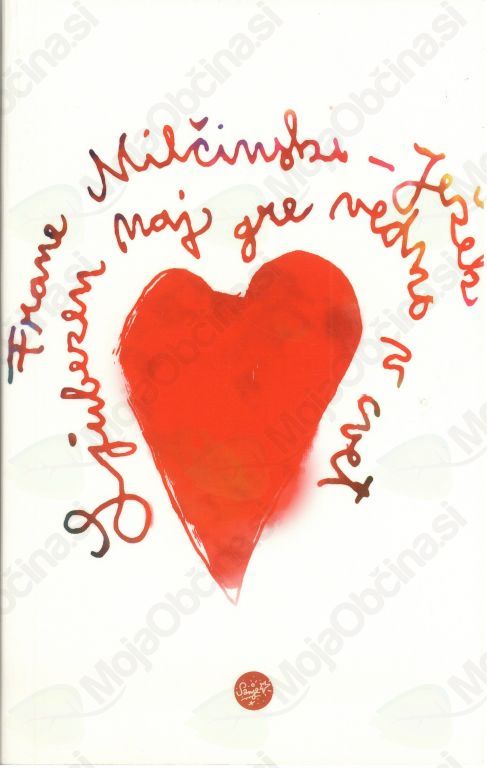 Frane Milčinski - Ježek
Ljubezen naj gre vedno v svet
Sanje
MojaObčina.si
MojaObčina.si
MojaObčina.si
MojaObčina.si
MojaObčina.si
MojaObčina.si